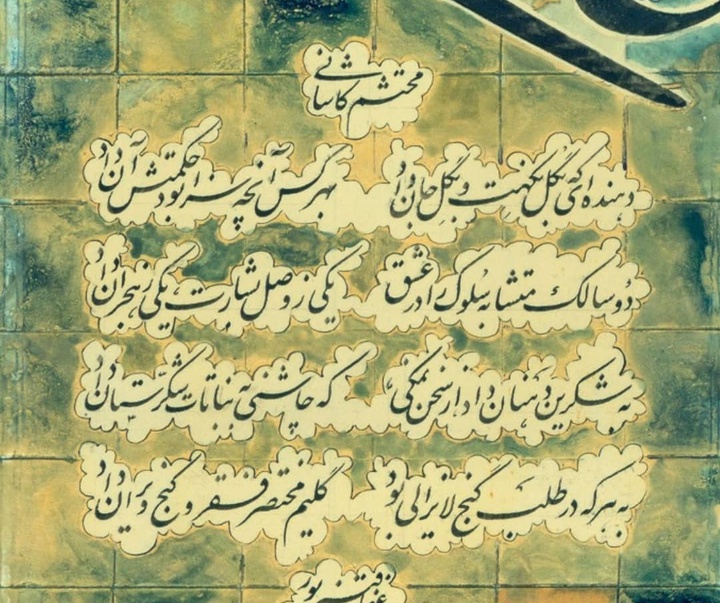 محتشم کاشانی
دهنده‌ای که بگل نکهت و بگل جان داد بهر کس آنچه سزا بود حکمتش آن داد
دو سالک متشابه سلوک را در عشق یکی ز وصل بشارت یکی ز هجران داد
به شکرین دهنان داد از سخن نمکی که چاشنی به نباتات شکرستان داد
به هر که در طلب گنج لایزالی بود گلیم مختصر فقر و کنج ویران داد